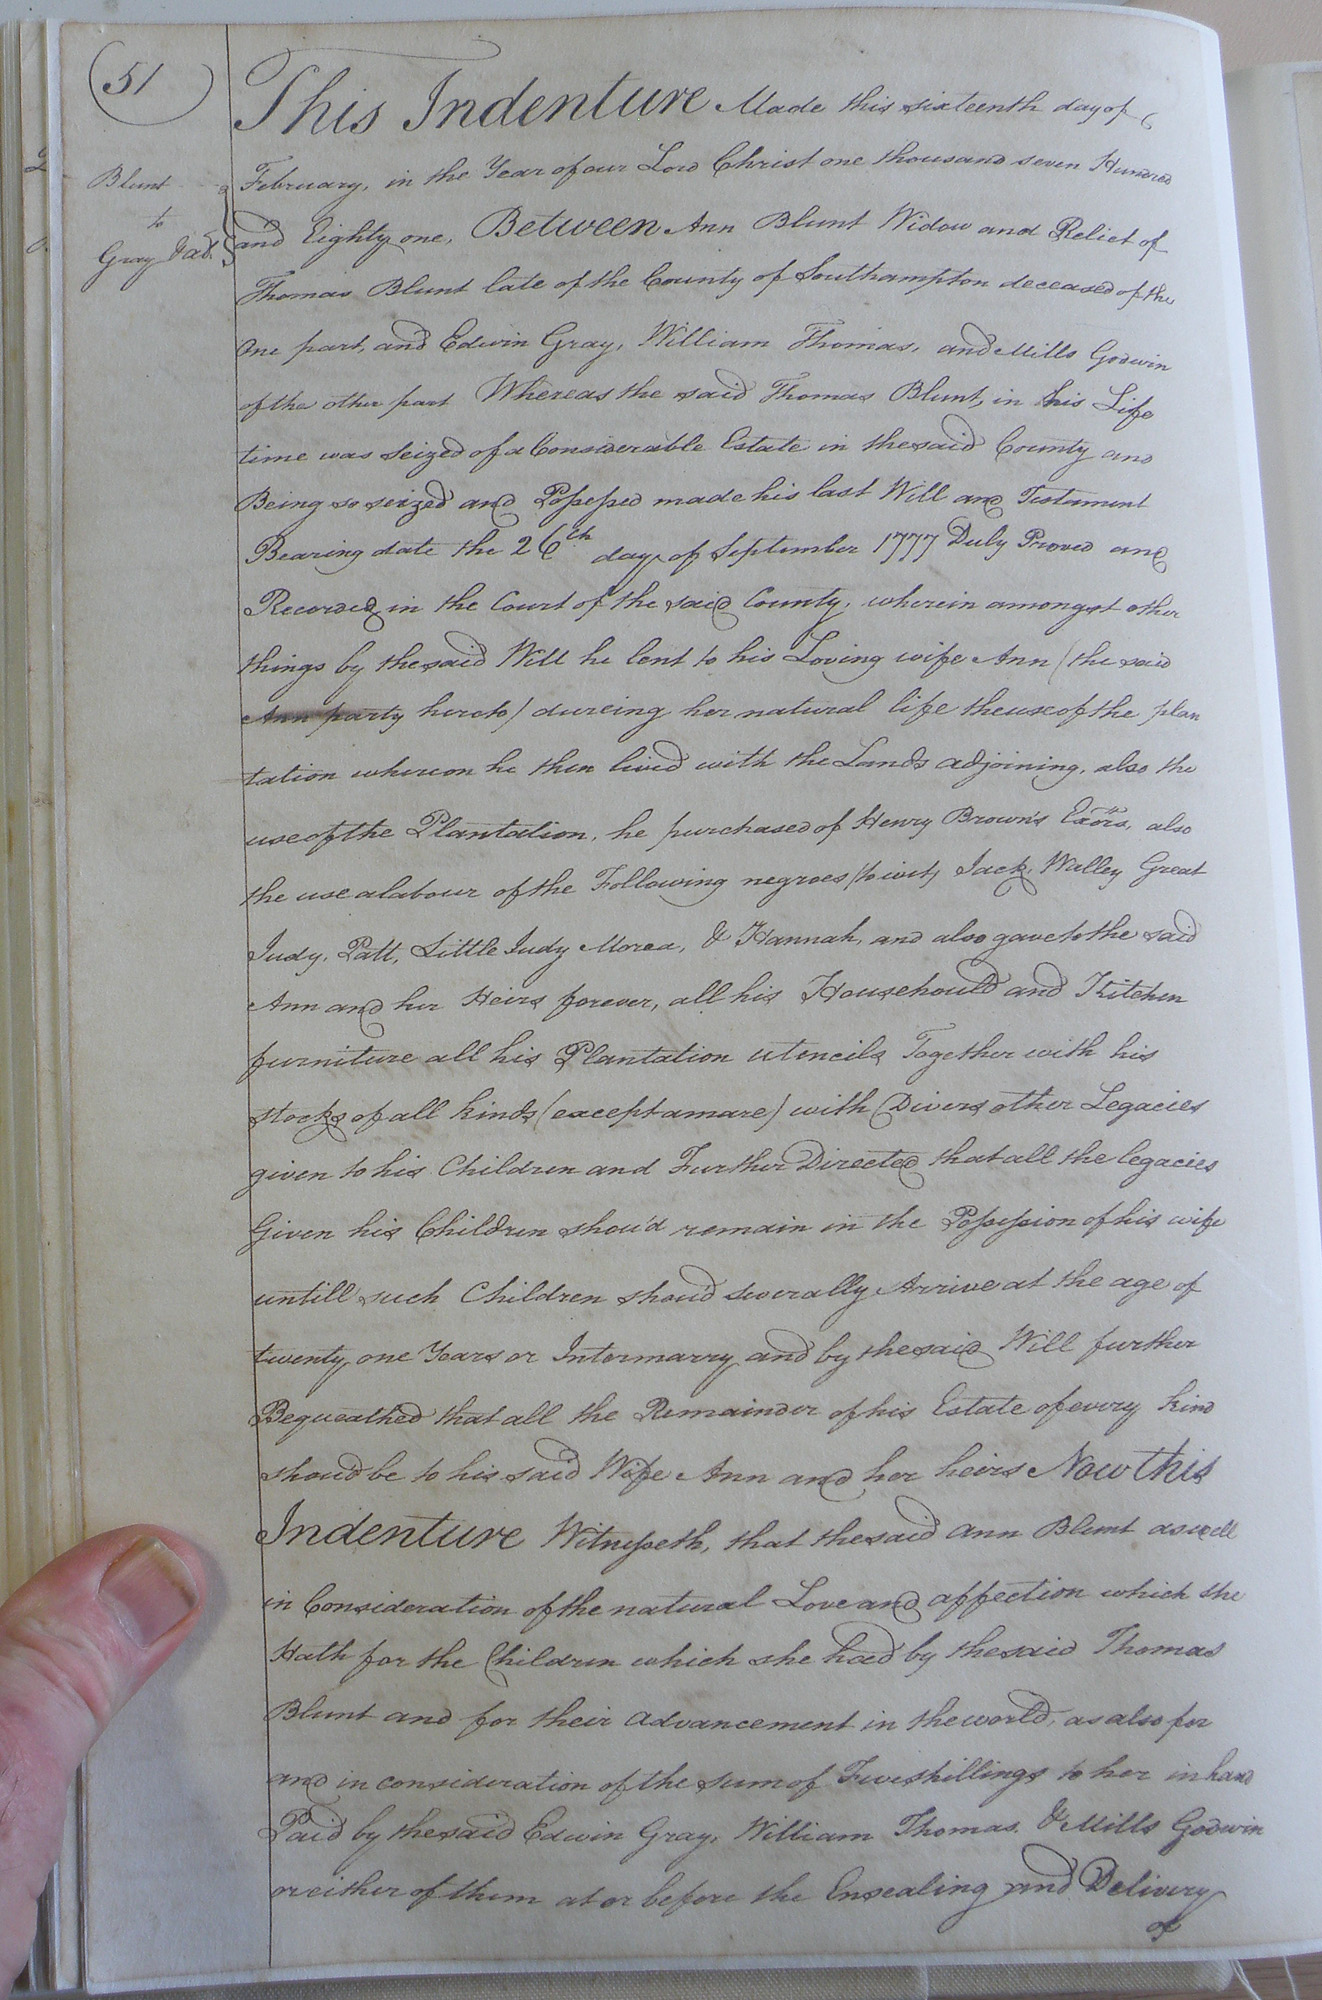 51
Blunt
to
Gray &ad.
This Indenture Made this sixteenth day of
February, in the Year of our Lord Christ one thousand seven Hundred
and Eighty one, Between Ann Blunt Widow and Relict of
Thomas Blunt late of the County of Southampton deceased of the
One part, and Edwin Gray, William Thomas, and Mills Godwin
of the other part Whereas the said Thomas Blunt, in his Life
time was Seized of a Considerable Estate in the said County and
Being so seized and Possessed made his last Will and Testament
Bearing date the 26th day of September 1777 Duly Proved and
Recorded in the Court of the said County, wherein amongst other
things by the said Will he lent to his Loving wife Ann (the said
Ann party hereto) dureing her natural life the use of the plan
tation whereon he then lived with the Lands adjoining, also the
use of the Plantation, he purchased of Henry Brown's Exors, also
the use a labour of the Following negroes (to wit) Jack, Walley Great
Judy, Patt, Little Judy Morea, & Hannah, and also gave to the said
Ann and her Heirs forever, all his Househould and Kitchen
furniture all his Plantation utencils Together with his
stocks of all kinds (except a mare) with Divers other Legacies
given to his Children and Further Directed that all the legacies
Given his Children shou'd remain in the Possession of his wife
untill such Children shou'd severally Arrive at the age of
twenty one Years or Intermarry and by the said Will further
Bequeathed that all the Remainder of his Estate of every kind
shou'd be to his said Wife Ann and her heirs Now this
Indenture Witnesseth, that the said Ann Blunt as well
in Consideration of the natural Love and affection which she
Hath for the Children which she had by the said Thomas
Blunt and for their advancement in the world, as also for
and in consideration of the sum of Five shillings to her in hand
Paid by the said Edwin Gray, William Thomas & Mills Godwin
or either of them at or before the Ensealing and Delivery
of